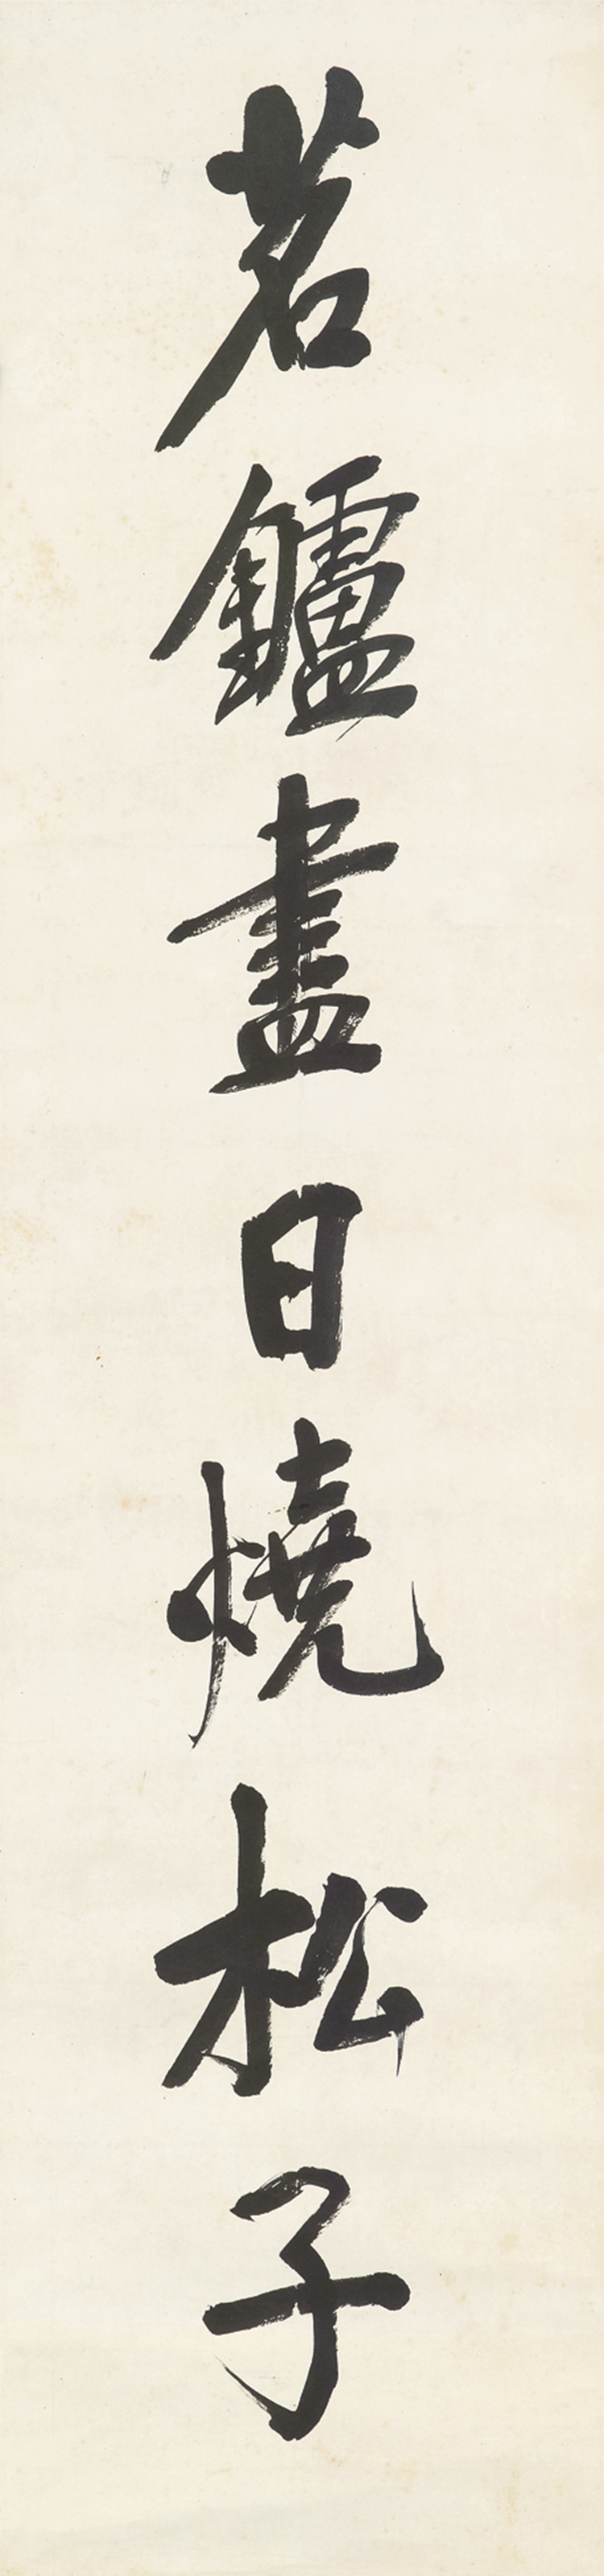 茗鑪盡日燒松子